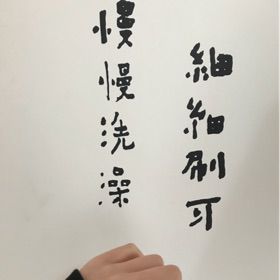 細細刷牙
慢慢洗澡